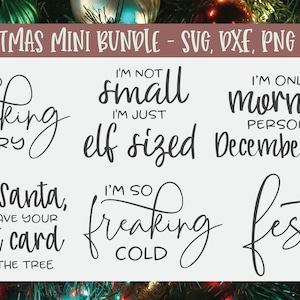 TMAS MINI BUNDLE - SVG, DXF, PNG
king
RY
I'M NOT
small
I'M JUST
elf sized
I'M ONL
morn
PERSO
December
Santa,
AVE YOUR
card
THE TREE
I'M SO
freaking
COLD
fes